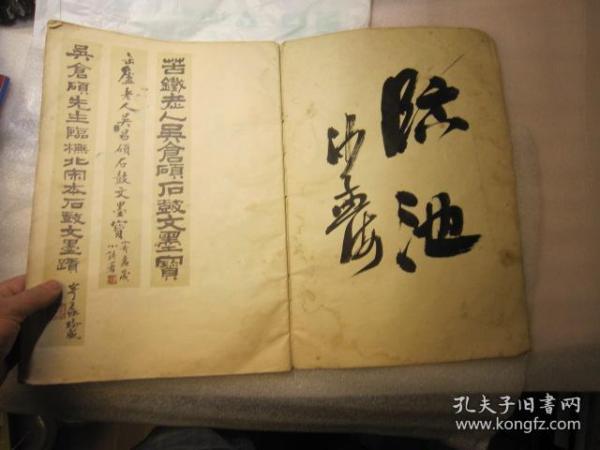 臨池
沙孟海
苦鐵老人吳倉碩石鼓文墨寶
缶廬老人吳昌碩石鼓文墨寶
吳倉碩先生臨橅北宋本石鼓文墨蹟
孔夫子旧书网
www.kongfz.com